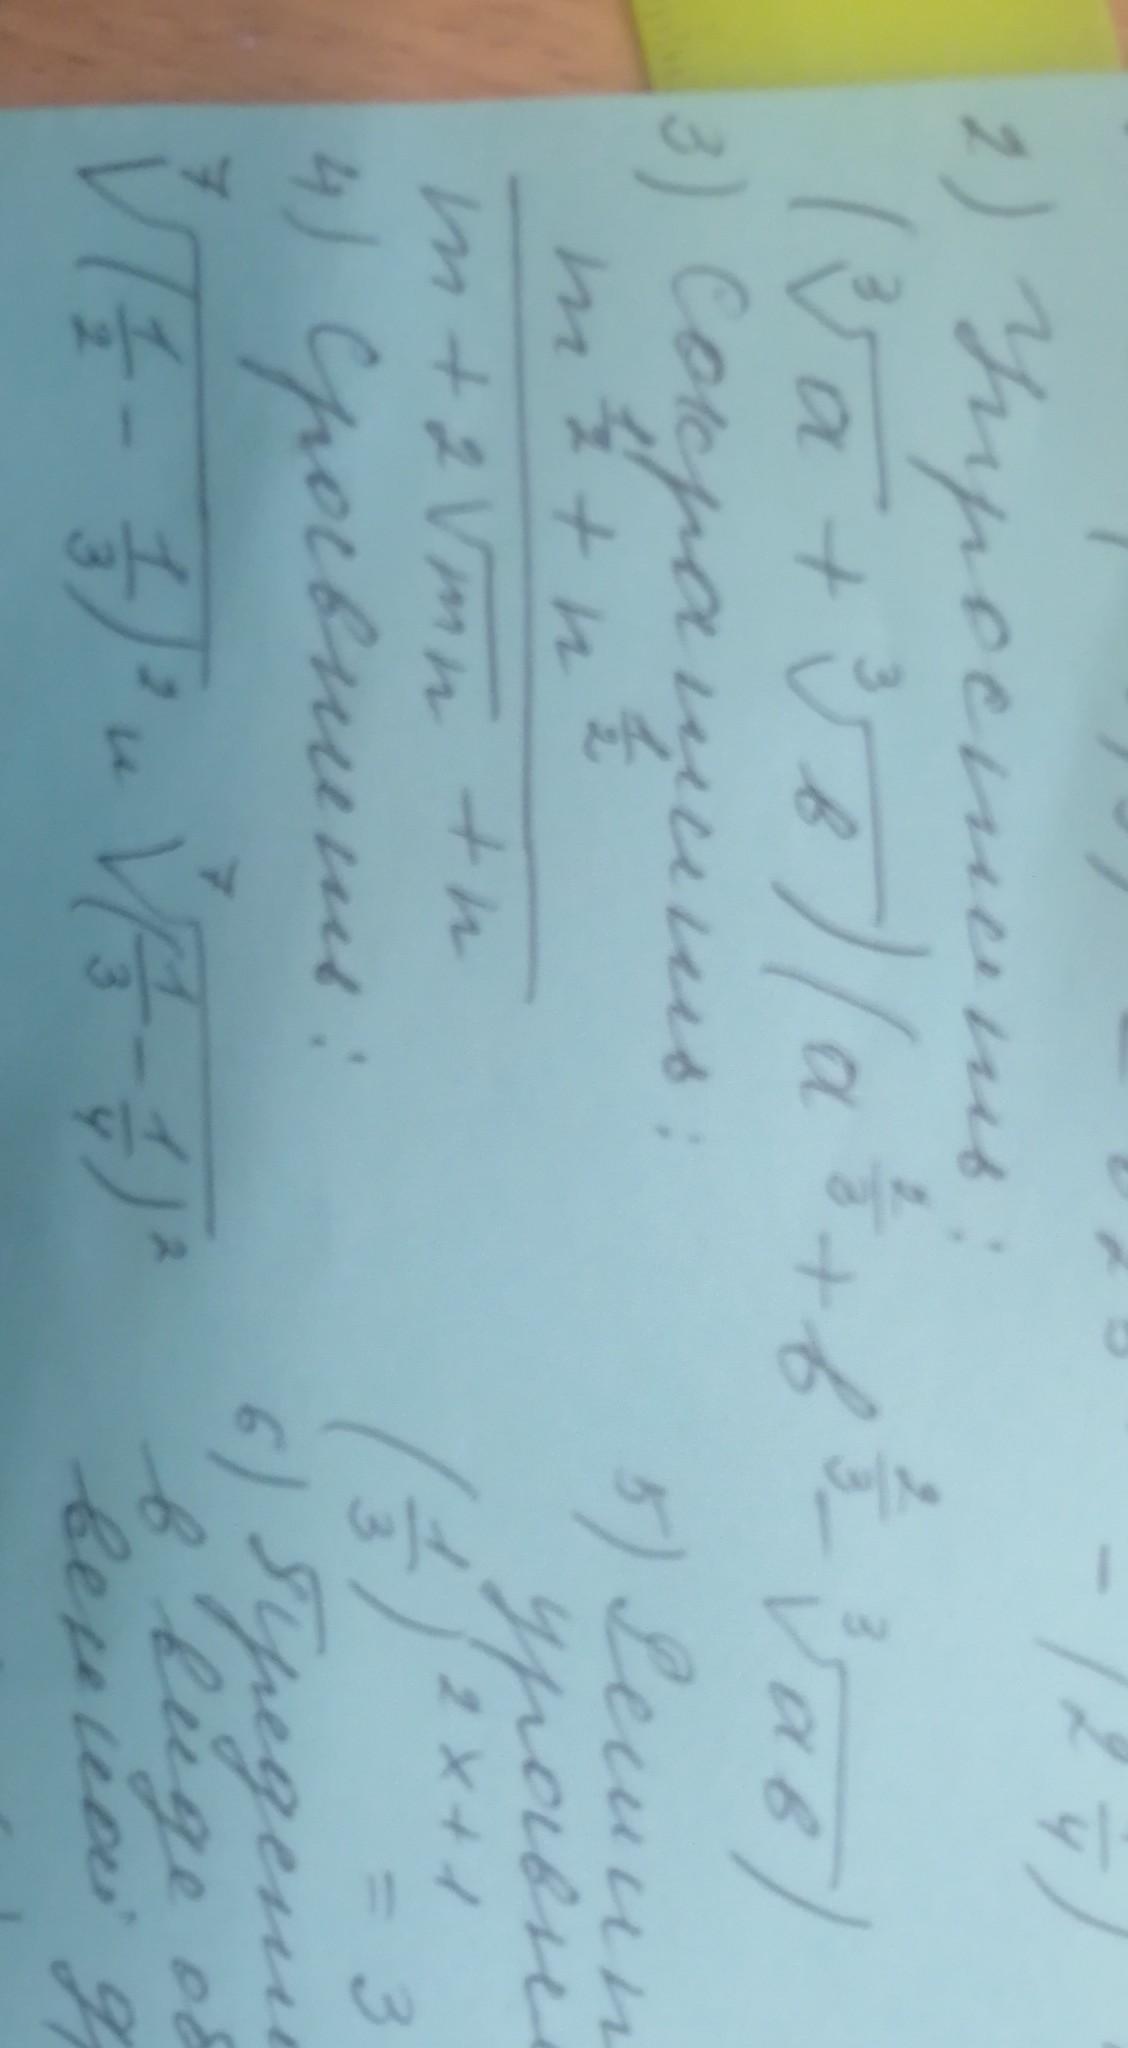 - (2 1/4)
2) Упростить:
(∛a + ∛в)(a^(2/3) + в^(2/3) - ∛aв)
3) Сократить:
m^(1/2) + n^(1/2)
m + 2√mn + n
4) Сравнить:
⁷√(1/2 - 1/3)² и ⁷√(1/3 - 1/4)²
5) Решит
уравне
(1/3)^(2x+1) = 3
6)
в виде об